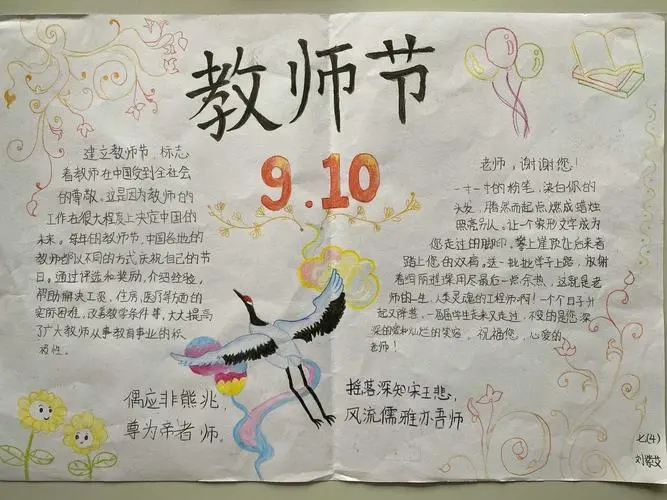 教师节
9.10
建立教师节,标志
着教师在中国受到全社会
的尊敬。这是因为教师的
工作在很大程度上决定中国的
未来。每年的教师节,中国各地的
教师都以不同的方式庆祝自己的节
日。通过评选和奖励,介绍经验,
帮助解决工资、住房、医疗等方面的
实际困难,改善教学条件等,大大提高
了广大教师从事教育事业的积
极性。
老师,谢谢您!
一寸一寸的粉笔,染白你的
头发,腾然而起点燃成蜡烛
照亮别人。让一个象形文字成为
您走过的脚印。攀上崖顶让后来者
踏上您的双肩。送一批批学子上路,
用尽最后一点余热,这就是老
师的一生,人类灵魂的工程师啊!一个个日子升
起又降落,一届届学生走来又走过,不变的是您深
深的爱和灿烂的笑容。祝福您,心爱的
老师!
偶应非熊兆,
尊为帝者师。
摇落深知宋玉悲,
风流儒雅亦吾师
七(4)